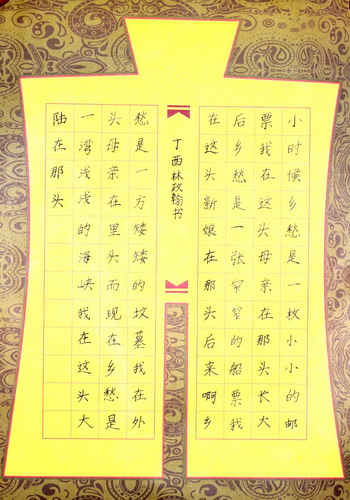 小时候乡愁是一枚小小的邮
票我在这头母亲在那头长大
后乡愁是一张窄窄的船票我
在这头新娘在那头后来啊乡
愁是一方矮矮的坟墓我在外
头母亲在里头而现在乡愁是
一湾浅浅的海峡我在这头大
陆在那头
丁酉林政翰书